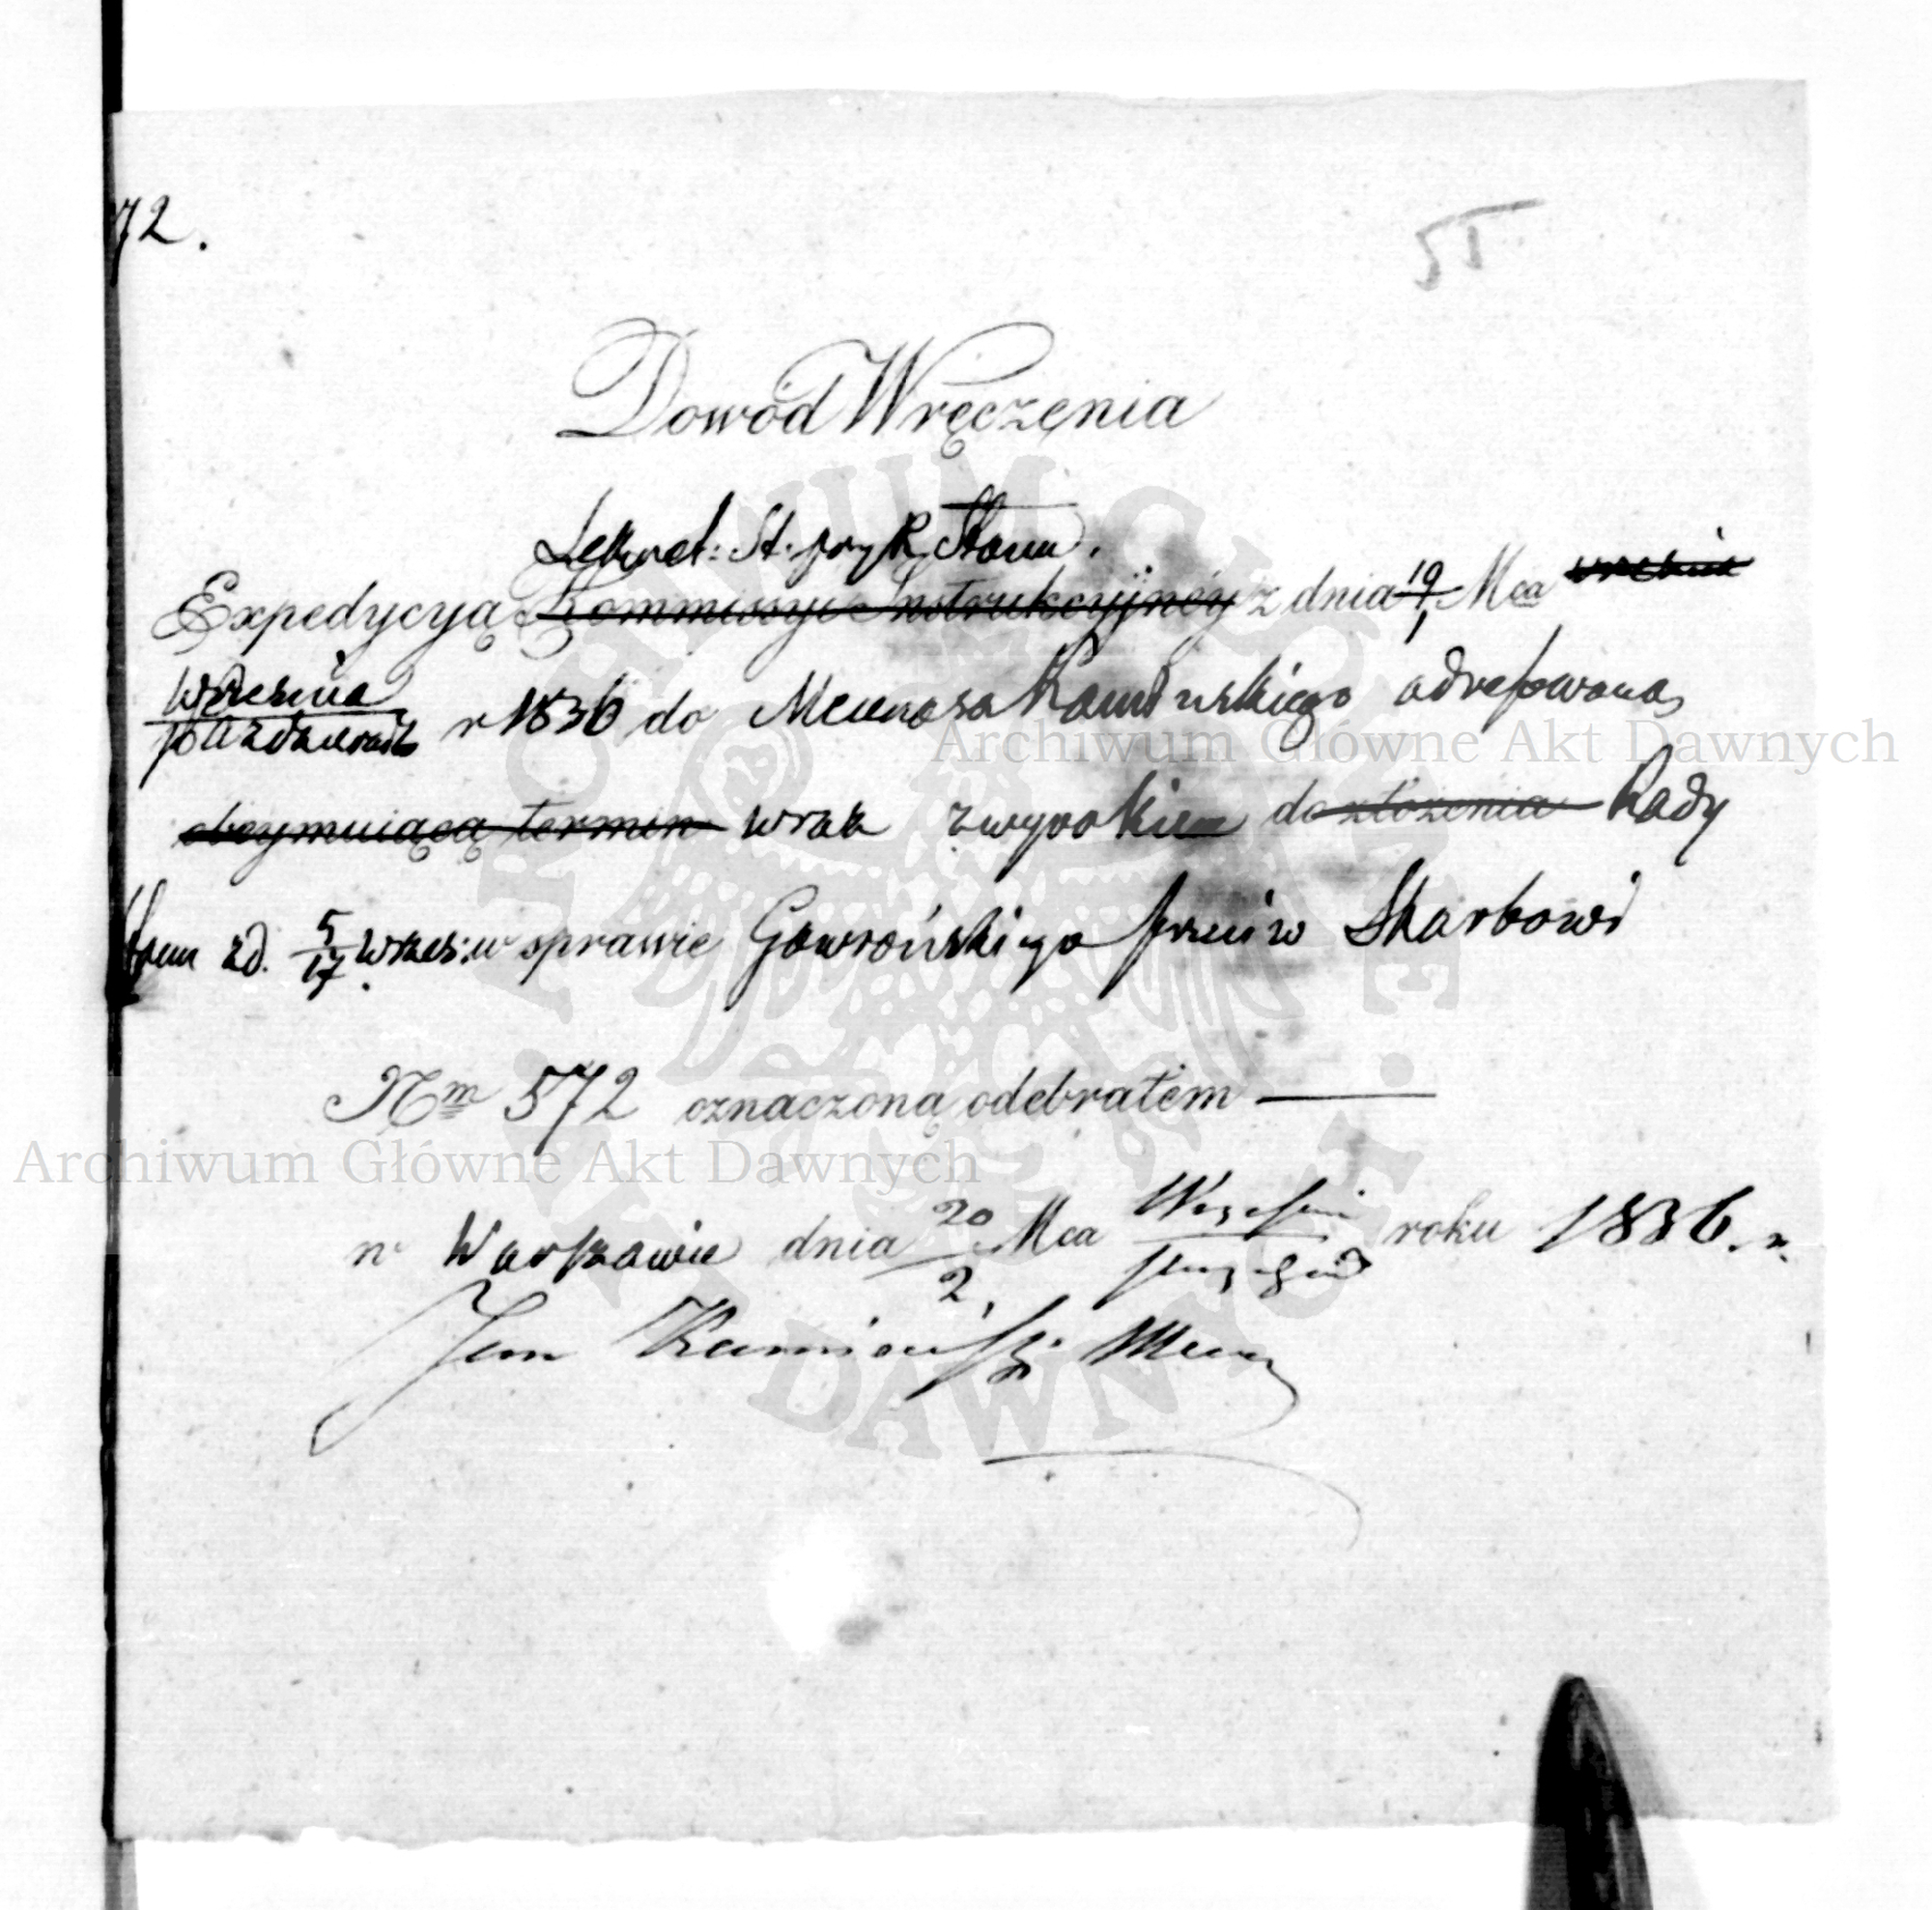 72.
51
Dowód Wręczenia
Sekret: St. przy R. Stanu.
Expedycyą Kommissyi Instrukcyjnéy z dnia 19/1 Mca września
Września/Października r 1836 do Mecenasa Kamińskiego adressowaną
obeymuiącą termin wraz z wyrokiem do złożenia Rady
Stanu z d. 5/17 wrześ: w sprawie Gawrońskiego przeciw Skarbowi
Nm 572 oznaczoną odebrałem
w Warszawie dnia 20/2 Mca Wrześni/Paźdź roku 1836. r.
Jan Kamiński Mec
Archiwum Główne Akt Dawnych
Archiwum Główne Akt Dawnych
ARCHIWUM GŁÓWNE AKT DAWNYCH